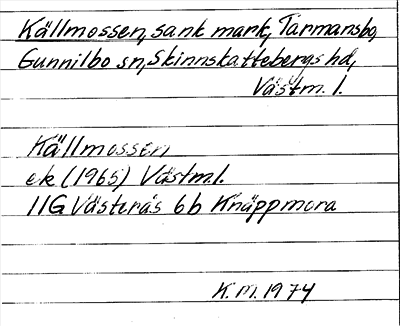 Källmossen, sank mark, Tarmansbo,
Gunnilbo sn, Skinnskattebergs hd,
Västm. l.
Källmossen
ek (1965) Västm.l.
11G Västerås 6b Knäppmora
K.M. 1974